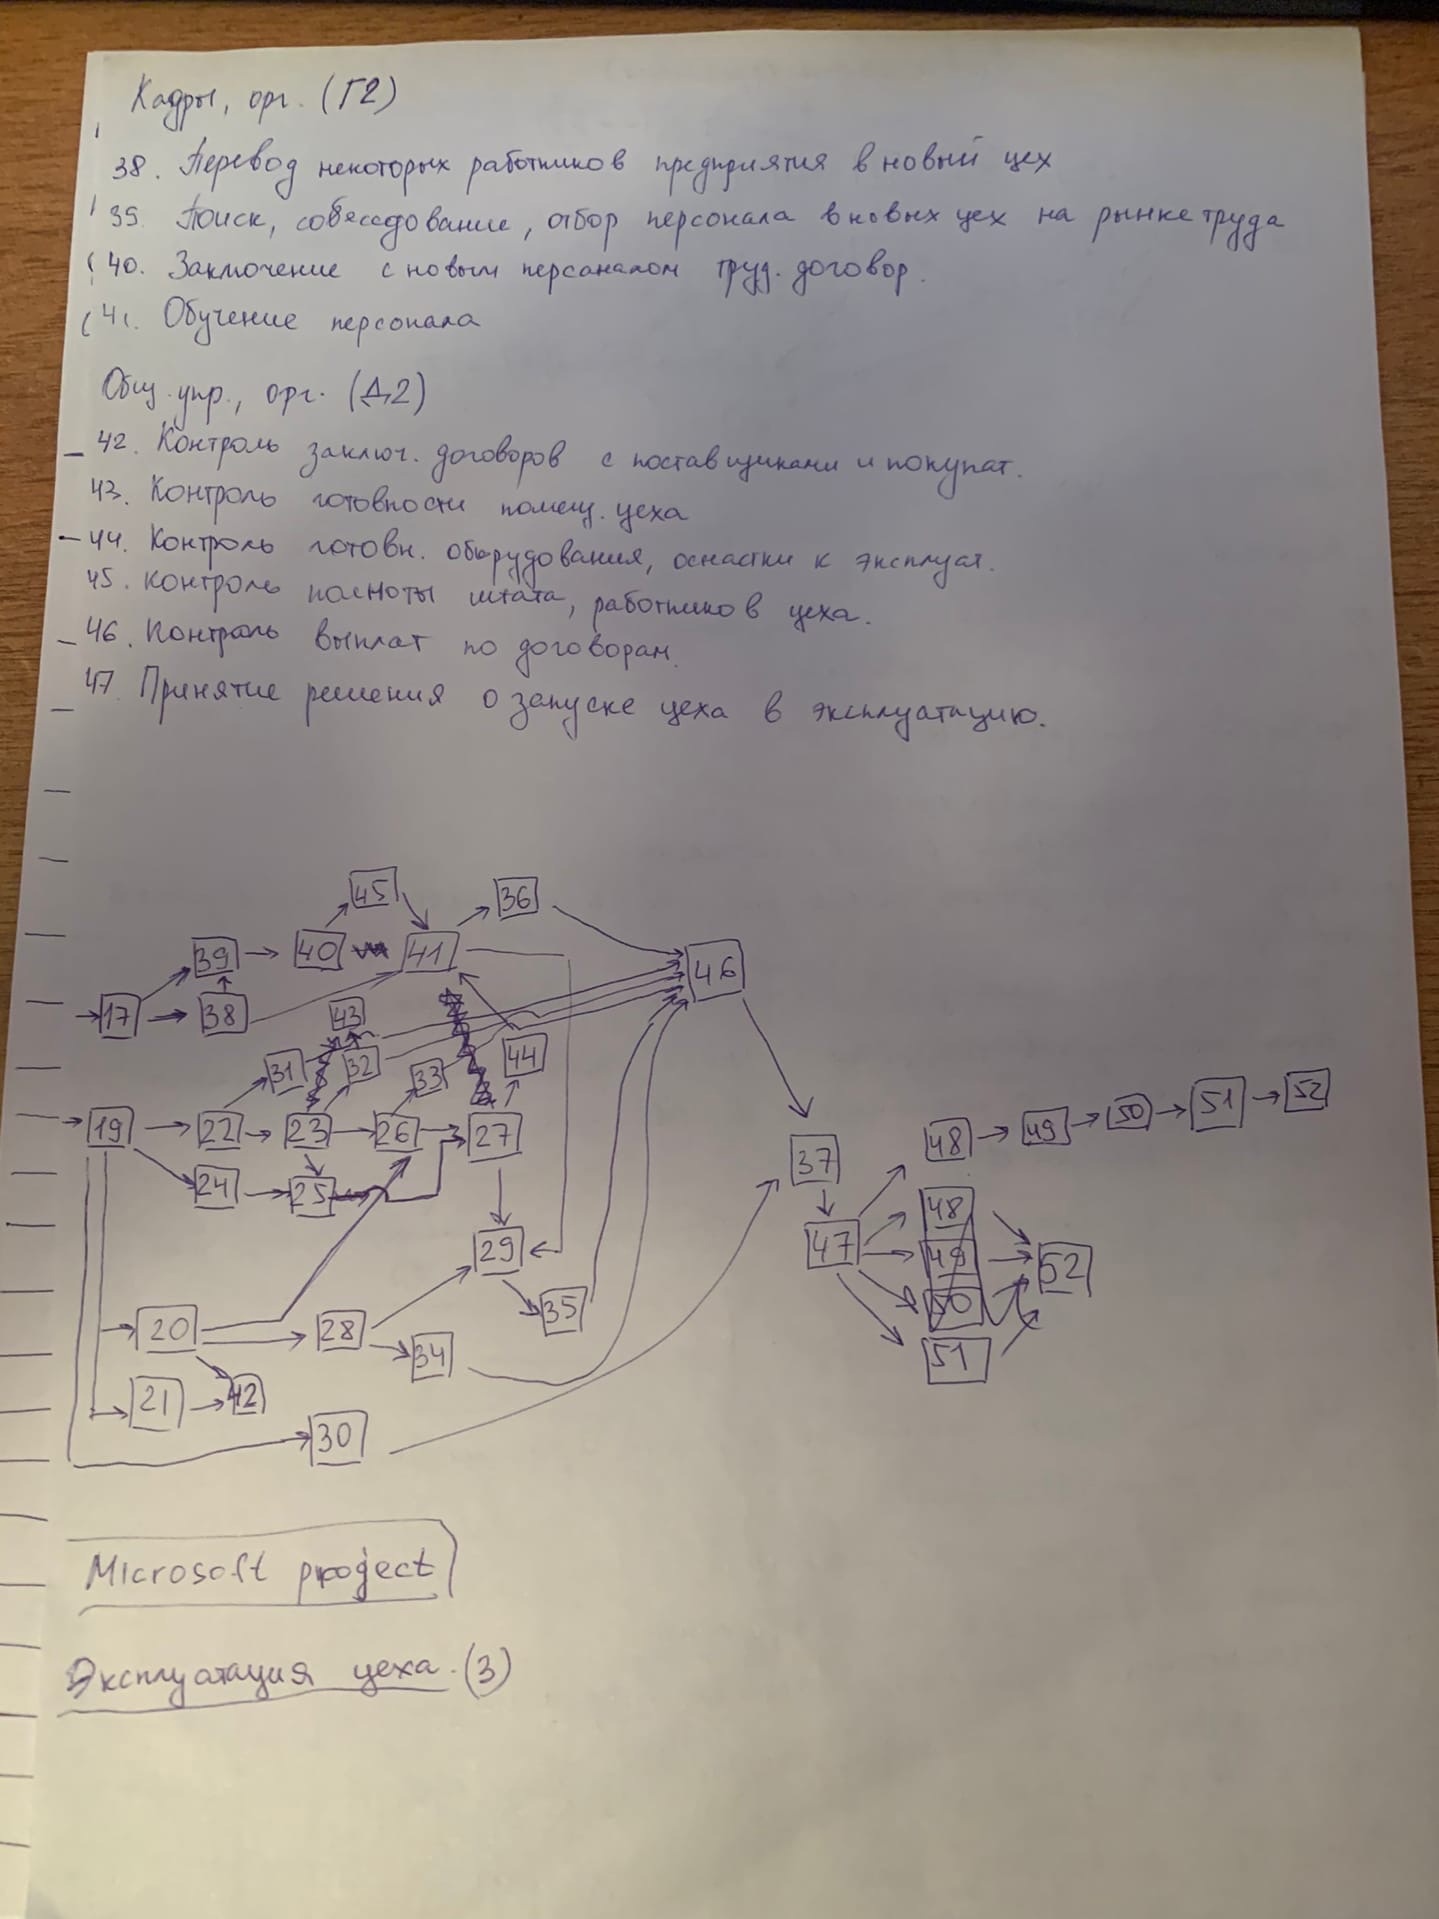 Кадры, орг. (Г2)
38. Перевод некоторых работников предприятия в новый цех
39. Поиск, собеседование, отбор персонала в новых цех на рынке труда
40. Заключение с новым персоналом труд. договор.
41. Обучение персонала
Общ. упр., орг. (Д2)
42. Контроль заключ. договоров с поставщиками и покупат.
43. Контроль готовности помещ. цеха
44. Контроль готовн. оборудования, оснастки к эксплуат.
45. Контроль полноты штата, работников цеха.
46. Контроль выплат по договорам.
47. Принятие решения о запуске цеха в эксплуатацию.
45 36
39 40 41 46
17 38 43
31 32 33 44
19 22 23 26 27
24 25
48 49 50 51 52
37
48
47 49 52
50
51
29
35
20 28 34
21 42
30
Microsoft project
Эксплуатация цеха. (3)